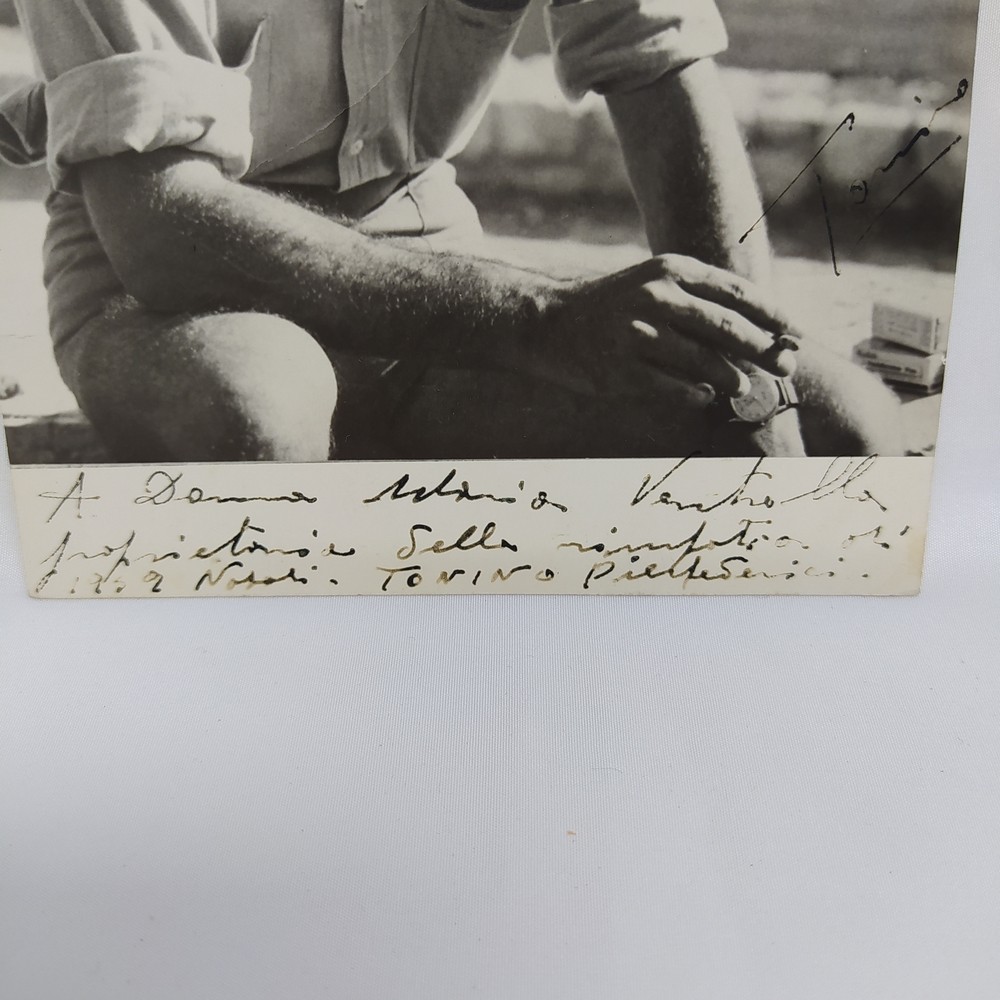 Tonino
A Donna Maria Ventrella
proprietaria della simpatia di
1939 Napoli. TONINO Pierfederici.